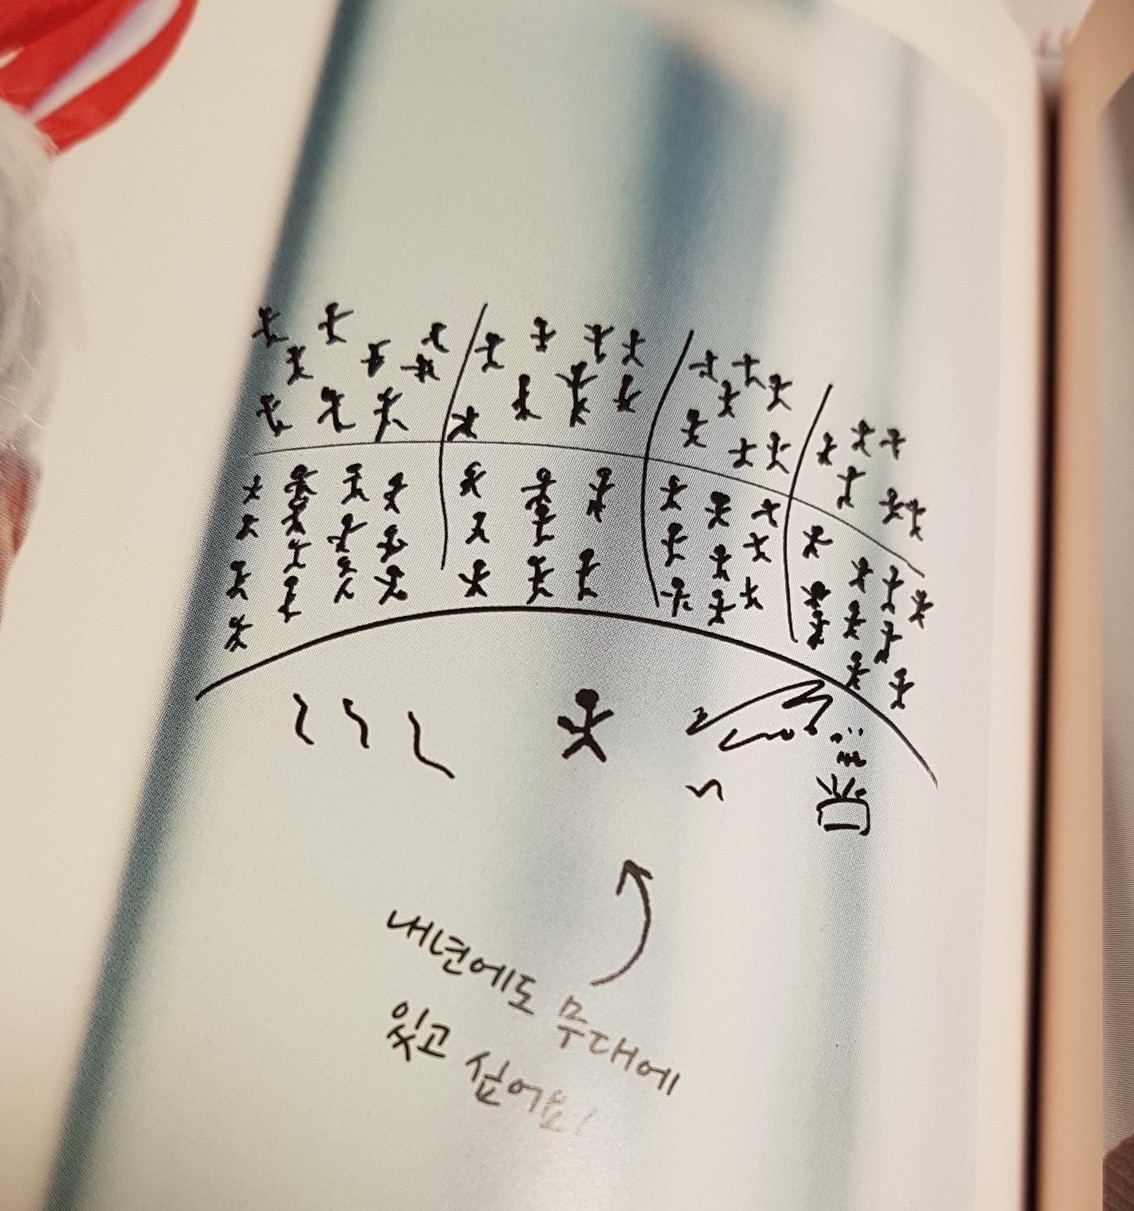 내년에도 무대에
있고 싶어요!